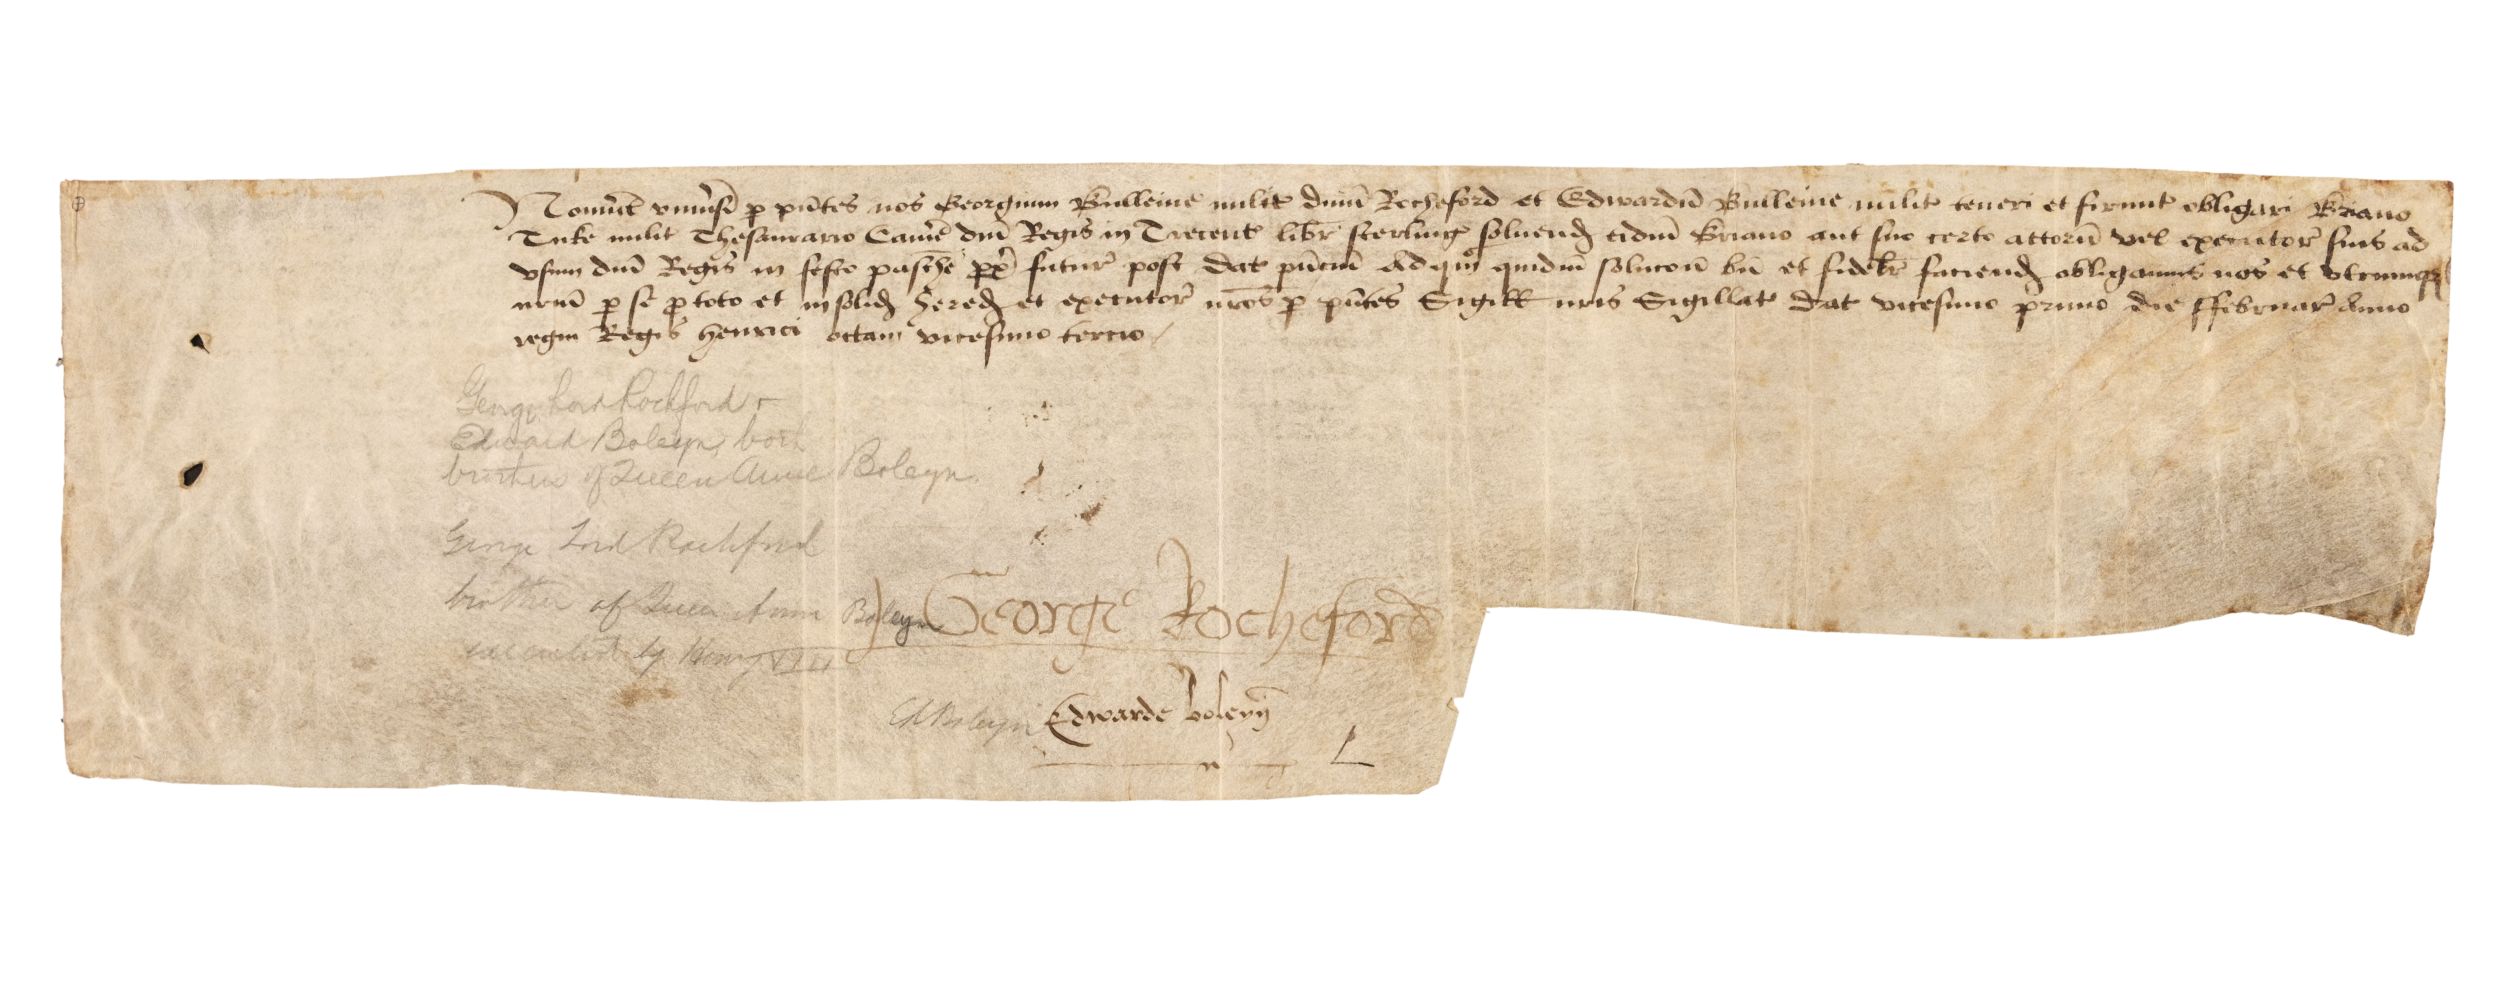 Noverint universi p pñtes nos Georgium Bulleine milit dñm Rocheford et Edwardũ Bulleine milit teneri et firmit obligari Briano
Tuke milit Thesaurario Camẽ dñi Regis in Trecent libr sterling solvend eidm Briano aut suo certo attorñ vel executor suis ad
usum dñi Regis in festo pasche px futur post dat pñciũ Ad quam quidm soluconẽ bñ et fidelr faciend obligamus nos et utrumqz
nrm p se pro toto et insolid hered et executor nros p pñtes Sigill nris Sigillat Dat vicesimo primo die ffebruar Anno
regni Regis henrici octavi vicesimo tercio
George Lord Rochford &
Edward Boleyn, both
brothers of Queen Anne Boleyn
George Lord Rochford
brother of Queen Anne Boleyn
executed by Henry VIII
George Rocheford
Ed Boleyn Edwarde boleyñ